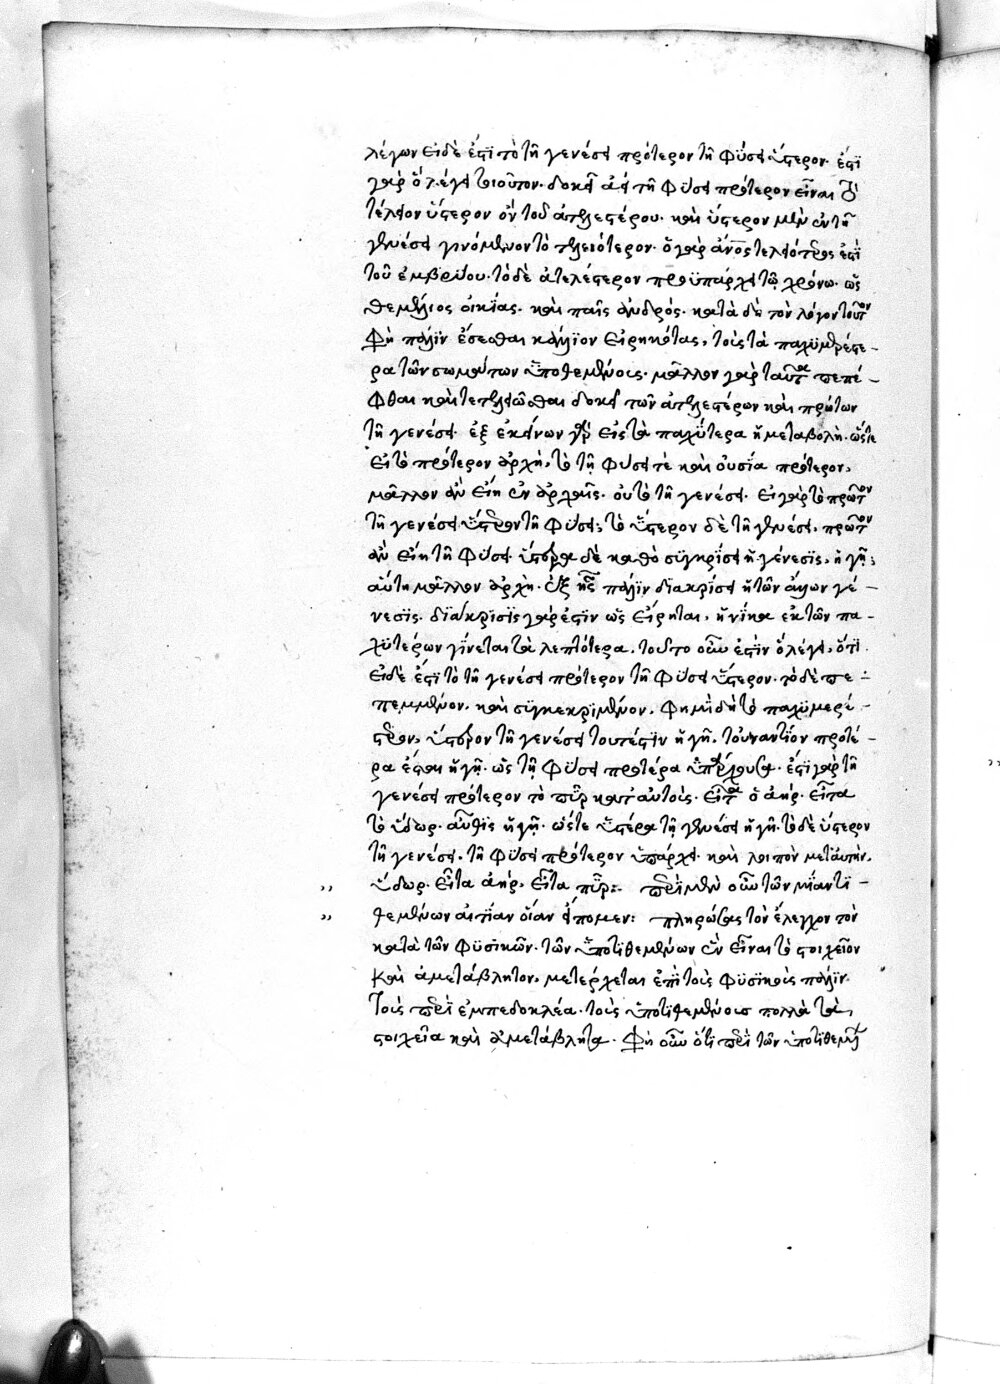 λέγων εἰ δὲ ἐστὶ τὸ τῆ γενέσει πρότερον τῆ φύσει ὕστερον. ἐστὶ
γὰρ ὃ λέγει τοιοῦτον. δοκεῖ ἀεὶ τῆ φύσει πρότερον εἶναι τὸ
τέλειον ὕστερον ὂν τοῦ ἀτελεστέρου. καὶ ὕστερον μὲν ἐν τῆ
γενέσει γινόμενον τὸ τελειότερον. ὁ γὰρ ἄνος τελειότερος ἐστὶ
τοῦ ἐμβρύου. τὸ δὲ ἀτελέστερον προϋπάρχει τῶ χρόνω. ὡς
θεμέλιος οἰκίας. καὶ παῖς ἀνδρός. κατὰ δὲ τὸν λόγον τοῦτον
φη πάλιν ἔσεσθαι κάλλιον εἰρηκότας, τοὺς τὰ παχυμερέστε-
ρα τῶν σωμάτων ὑποθεμένους. μᾶλλον γὰρ ταῦτα πεπέ-
φθαι καὶ τετελειῶσθαι δοκεῖ τῶν ἀτελεστέρων καὶ πρώτων
τῆ γενέσει. ἐξ ἐκείνων γὰρ εἰς τὰ παχύτερα ἡ μεταβολή. ὥστε
εἰ τὸ πρότερον ἀρχὴ, τὸ τῆ φύσει τὲ καὶ οὐσία πρότερον,
μᾶλλον ἂν εἴη ἐν ἀρχαῖς. οὐ τὸ τῆ γενέσει. εἰ γὰρ τὸ πρῶτον
τῆ γενέσει ὕστερον τῆ φύσει, τὸ ὕστερον δὲ τῆ γενέσει, πρῶτον
ἂν εἴη τῆ φύσει ὑστέρα δὲ καθὸ συγκρίσει ἡ γένεσις, ἡ γῆ,
αὕτη μᾶλλον ἀρχὴ. ἐξ ἧς πάλιν διακρίσει ἡ τῶν ἄλλων γέ-
νεσις. διάκρισις γάρ ἐστιν ὡς εἴρηται, ἡνίκα ἐκ τῶν πα-
χυτέρων γίνεται τὰ λεπτότερα. τοῦτο οὖν ἐστὶν ὃ λέγει, ὅτι
εἰ δὲ ἐστὶ τὸ τῆ γενέσει πρότερον τῆ φύσει ὕστερον. τὸ δὲ πε-
πεμμένον. καὶ συγκεκριμένον. φημὶ δὴ τὸ παχυμερέ-
στερον, ὕστερον τῆ γενέσει τουτέστιν ἡ γῆ. τοὐναντίον προτέ-
ρα ἔσται ἡ γῆ. ὡς τῆ φύσει προτέρα ὑπάρχουσα. ἐστὶ γὰρ τῆ
γενέσει πρότερον τὸ πῦρ κατ αὐτοὺς. εἶτα ὁ ἀήρ. εἶτα
τὸ ὕδωρ. αὖθις ἡ γῆ. ὥστε ὑστέρα τῆ γενέσει ἡ γῆ. τὸ δὲ ὕστερον
τῆ γενέσει. τῆ φύσει πρότερον ὑπάρχει. καὶ λοιπὸν μετ αὐτὴν,
,, ὕδωρ. εἶτα ἀήρ. εἶτα πῦρ:- περὶ μὲν οὖν τῶν μίαν τι-
,, θεμένων αἰτίαν οἵαν εἴπομεν: πληρώσας τὸν ἔλεγχον τὸν
κατὰ τῶν φυσικῶν. τῶν ὑποτιθεμένων ἓν εἶναι τὸ στοιχεῖον
καὶ ἀμετάβλητον, μετέρχεται ἐπὶ τοὺς φυσικοὺς πάλιν.
τοὺς περὶ ἐμπεδοκλέα. τοὺς ὑποτιθεμένους πολλὰ τὰ
στοιχεῖα καὶ ἀμετάβλητα. φη οὖν ὅτι περὶ τῶν ὑποτιθεμεν